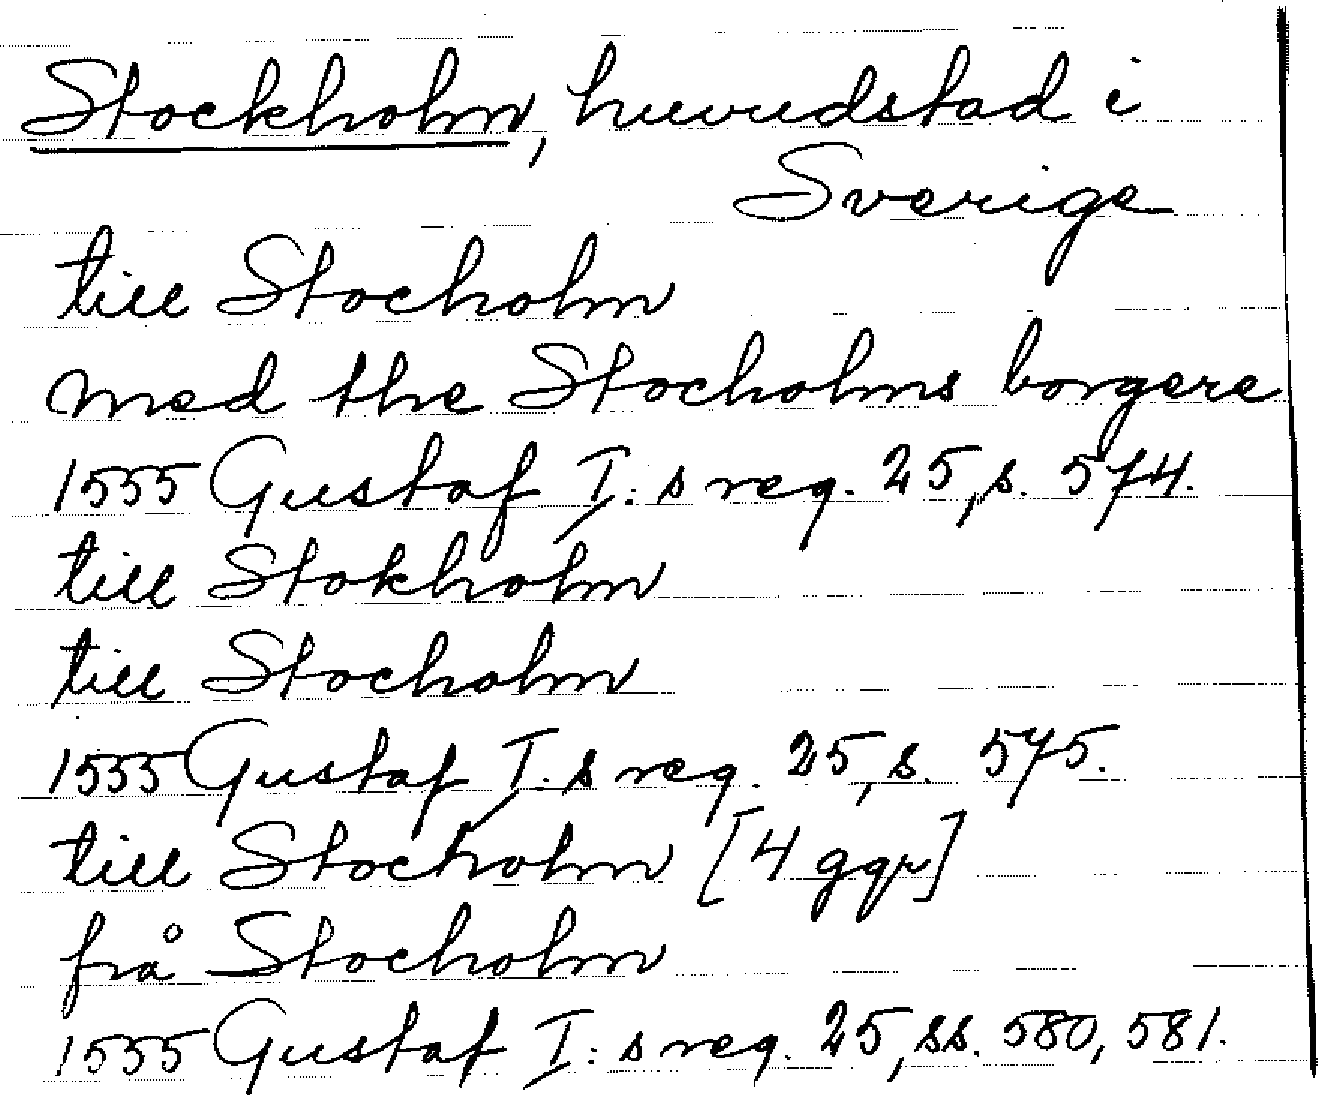 Stockholm, huvudstad i
Sverige
till Stocholm
med the Stocholms borgere
1555 Gustaf I:s reg. 25, s. 574.
till Stokholm
till Stocholm
1555 Gustaf I:s reg. 25, s. 575.
till Stocholm [4 ggr]
från Stocholm
1555 Gustaf I:s reg. 25, ss. 580, 581.